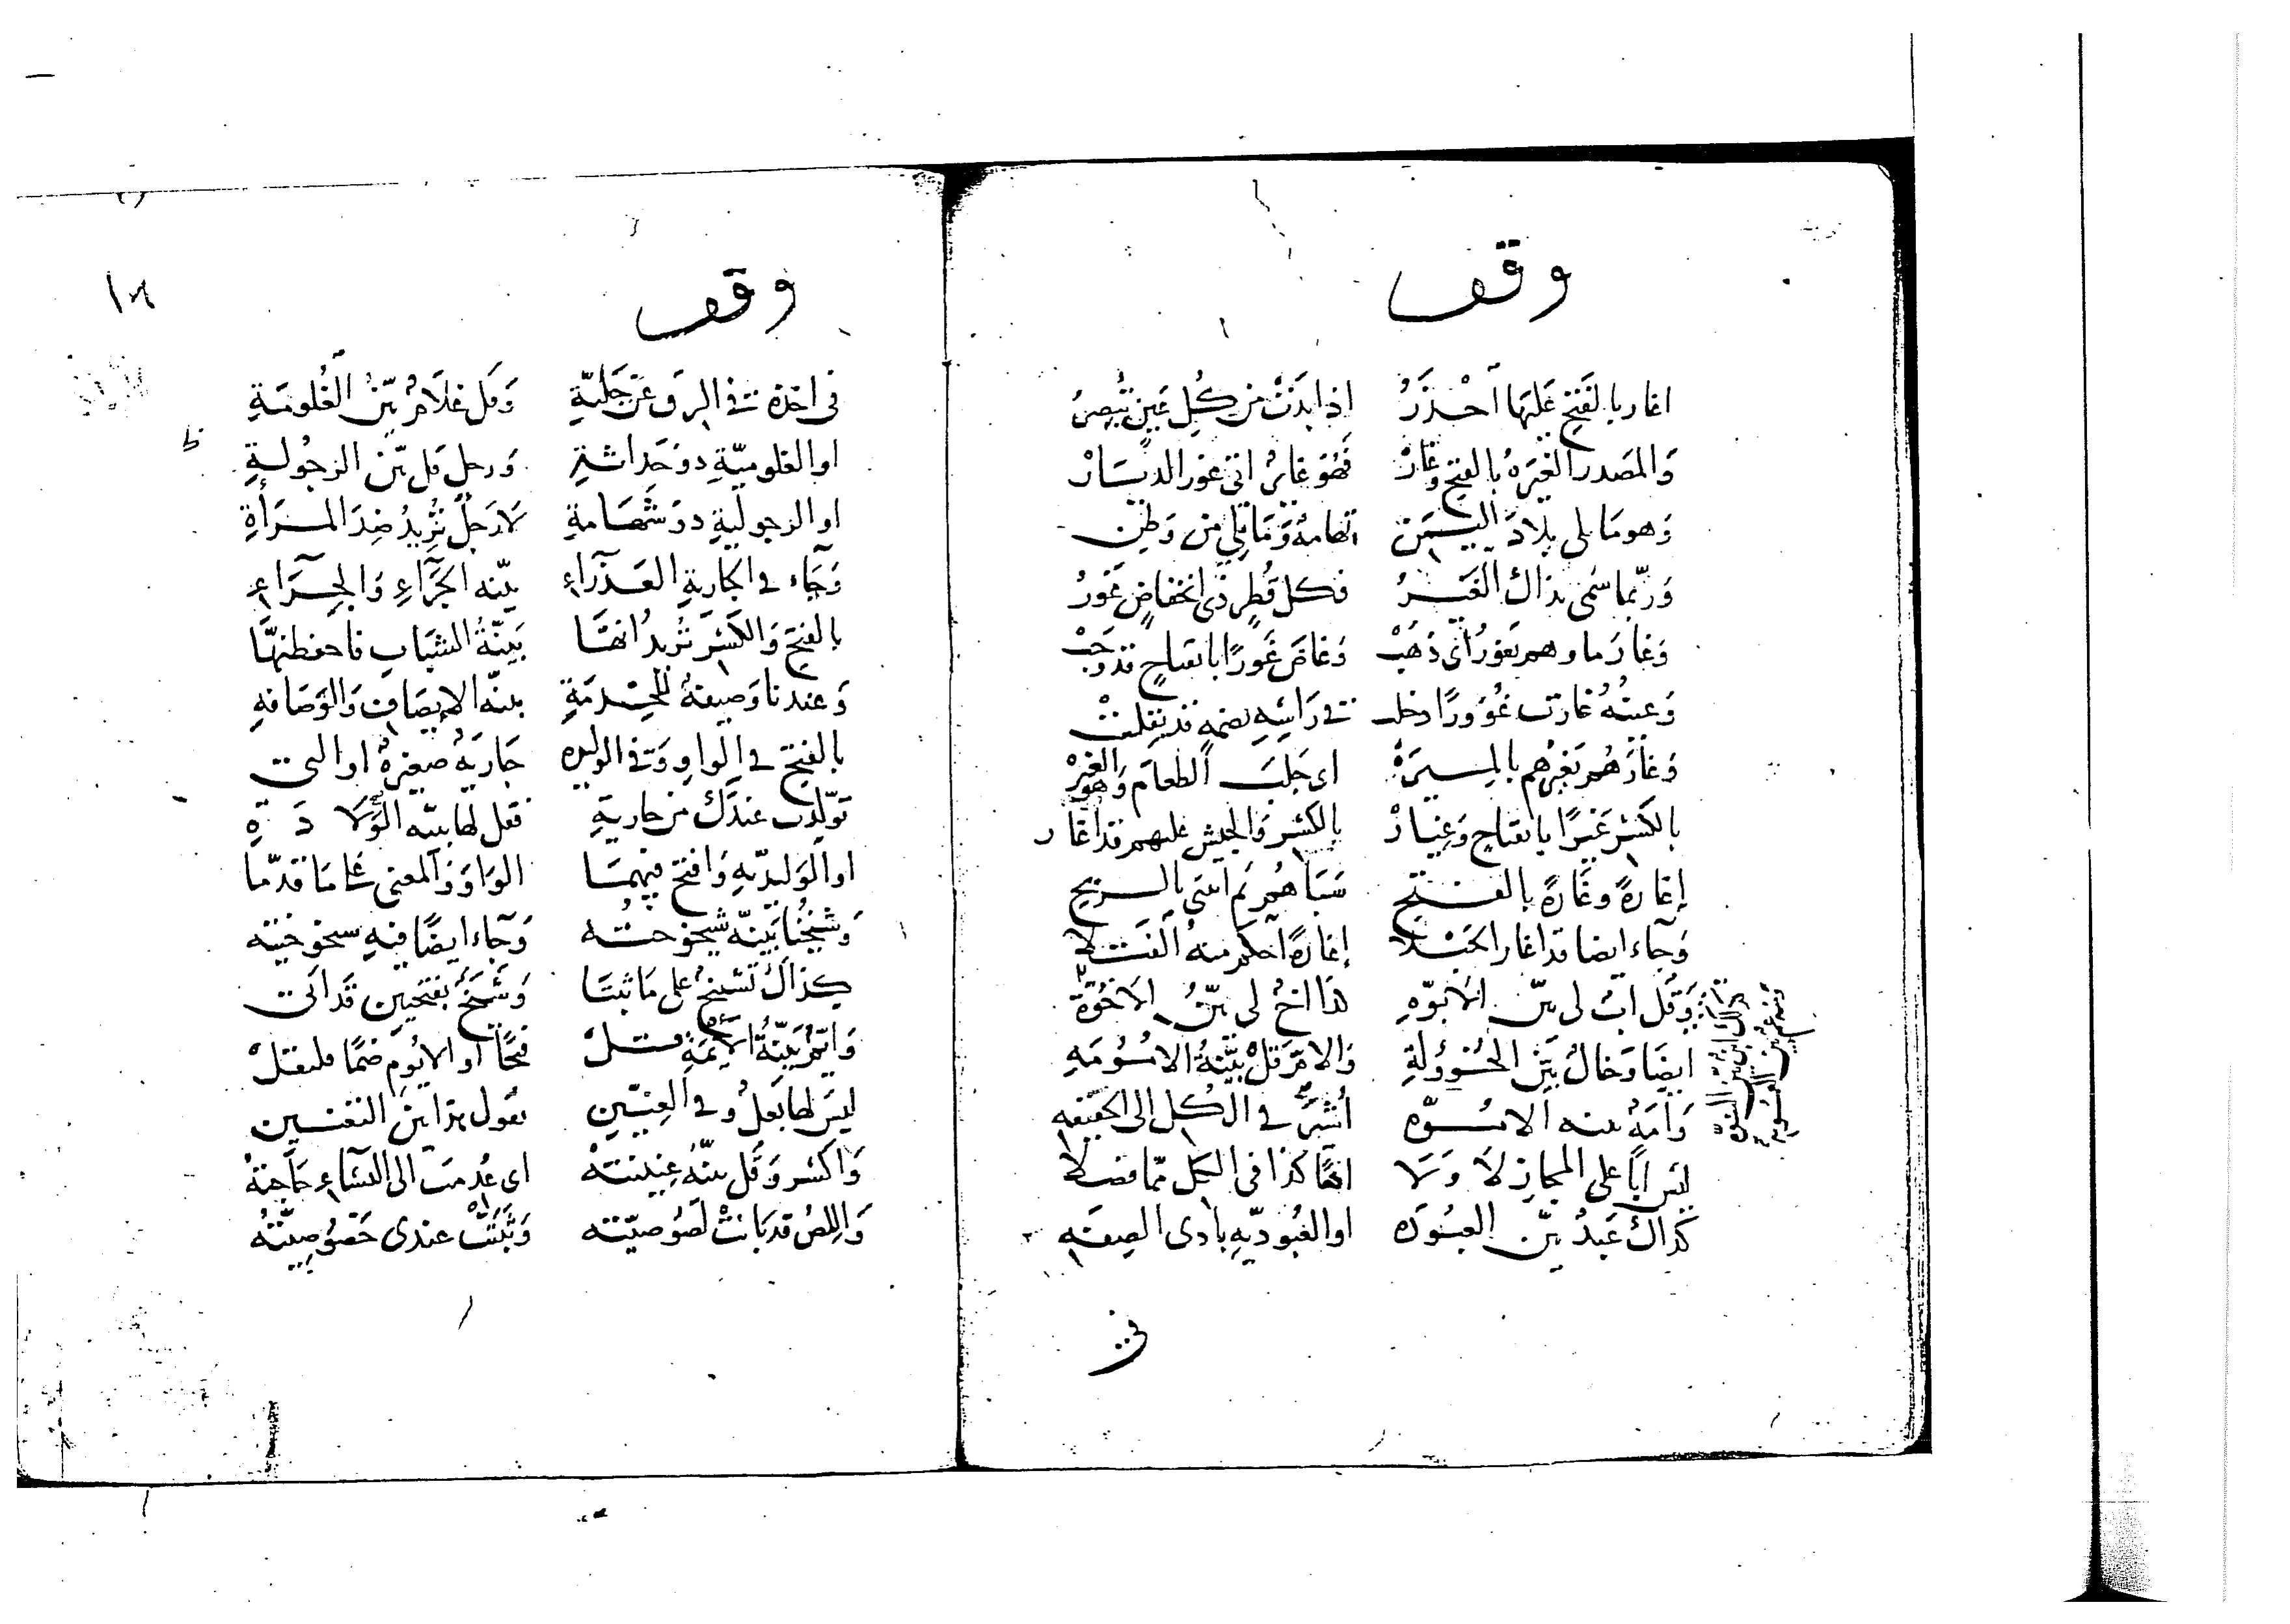 وقف
اغار بالفَتح عَليها أحْذَرُ اذا بَدَتْ من كُلِّ عَينٍ تُبصِرُ
وَالمَصدر الغَيرَةُ بالفتح وغَارْ فَهُوَ غائرٌ اتى غور الديَارْ
وَهو مَا يلى بِلادَ اليَمَن تهامةٌ وَمَا يلي من وَطن
وَربّما سُمى بذاك الغَورُ فكل قُطرٍ ذى انخفاضٍ غَورُ
وَغارَ ماوهم يَغورُ اى ذهَبْ وَغاضَ غَورًا بانفتاحٍ قد وَجَبْ
وَعينُهُ غارت غُوُورًا دخلت في رَاسِهِ بضمةٍ قد نقلت
وَغارَهُم يَغيرُهم بالميرَةْ اى جَلبَ الطعامَ وَهو الغِيرَهْ
بالكَسْر غَيرًا بانفتاحٍ وَغِيَارْ بالكَسْر وَالجيش عليهم قد اغار
إغارةً وغارةً بالفتح سَبَاهُم ثم انثنى بالربح
وَجآء ايضا قد اغار الحَبْلا إغارةً احكم منه الفتلا
وَقل ابٌ لى بيّن الابوّه هذا اخٌ لى بيّنُ الاخُوّة
ايضًا وَخالٌ بَيّن الخُؤولةِ وَالامّ قلْ بَيّنةُ الامُومَهِ
وَامَةٌ بينه الامُوّه أشِرْ في الكل الى الحقيقه
ليس ابًا على المجاز لا وَلا امًا كذا فى الكل ممّا فصلا
كذاك عَبدٌ بيّن العبُودَه او العُبوديّهِ بادى الصِفَهِ
فى
وقف
فى اخذه في الرق عن جَليّةِ وَقل غلامٌ بيّن الغُلومَةِ
او الغلوميّةِ ذو حَداثةِ وَرجل قل بيّن الرجُولةِ
او الرجوليةِ ذو شَهَامةِ لا رَجلٌ تُريدُ ضِدَ المرأةِ
وَجآء في الجاريةِ العَذْراءِ بيّنه الجَرَآءِ وَالجِرَآءِ
بالفتح وَالكَسْر تُريدُ انهَّا بَيّنةُ الشبَابِ فاحفظنهَّا
وَعندنا وَصيفةٌ للخِدمَةِ بينّه الايصَافِ وَالوَصَافهِ
بالفتح في الوَاوِ وَفي الوليده جَاريَةٌ صغيرةٌ او التى
توَلّدت عندَك من جاريةِ فقل لها بينه الوَلادَةِ
او الوَليديّهِ وَافتح فيهمَا الوَاوَ وَالمعنى عَلى مَا قدّما
وَشيخُنا بَينّه شيخوخته وَجآء ايضًا فيهِ شيخوخيته
كذاك تشيخٌ على مَا ثبتَا وَشَيَخٌ بفتحين قَد اتى
وَايّمٌ بَيّنَةُ الايمَةِ قل فتحًا او الايُومِ ضمًا فليقل
ليس لها بَعلٌ وفي العِنّينِ تقول هذا بين التعنين
وَاكسر وَقل بينّهُ عِنّينتهْ اى عُدِمت الى النسَاءِ حَاجتهْ
وَاللص قد بَانتْ لصُوصيّته وَثبتتْ عندى خَصُوصيّتُه